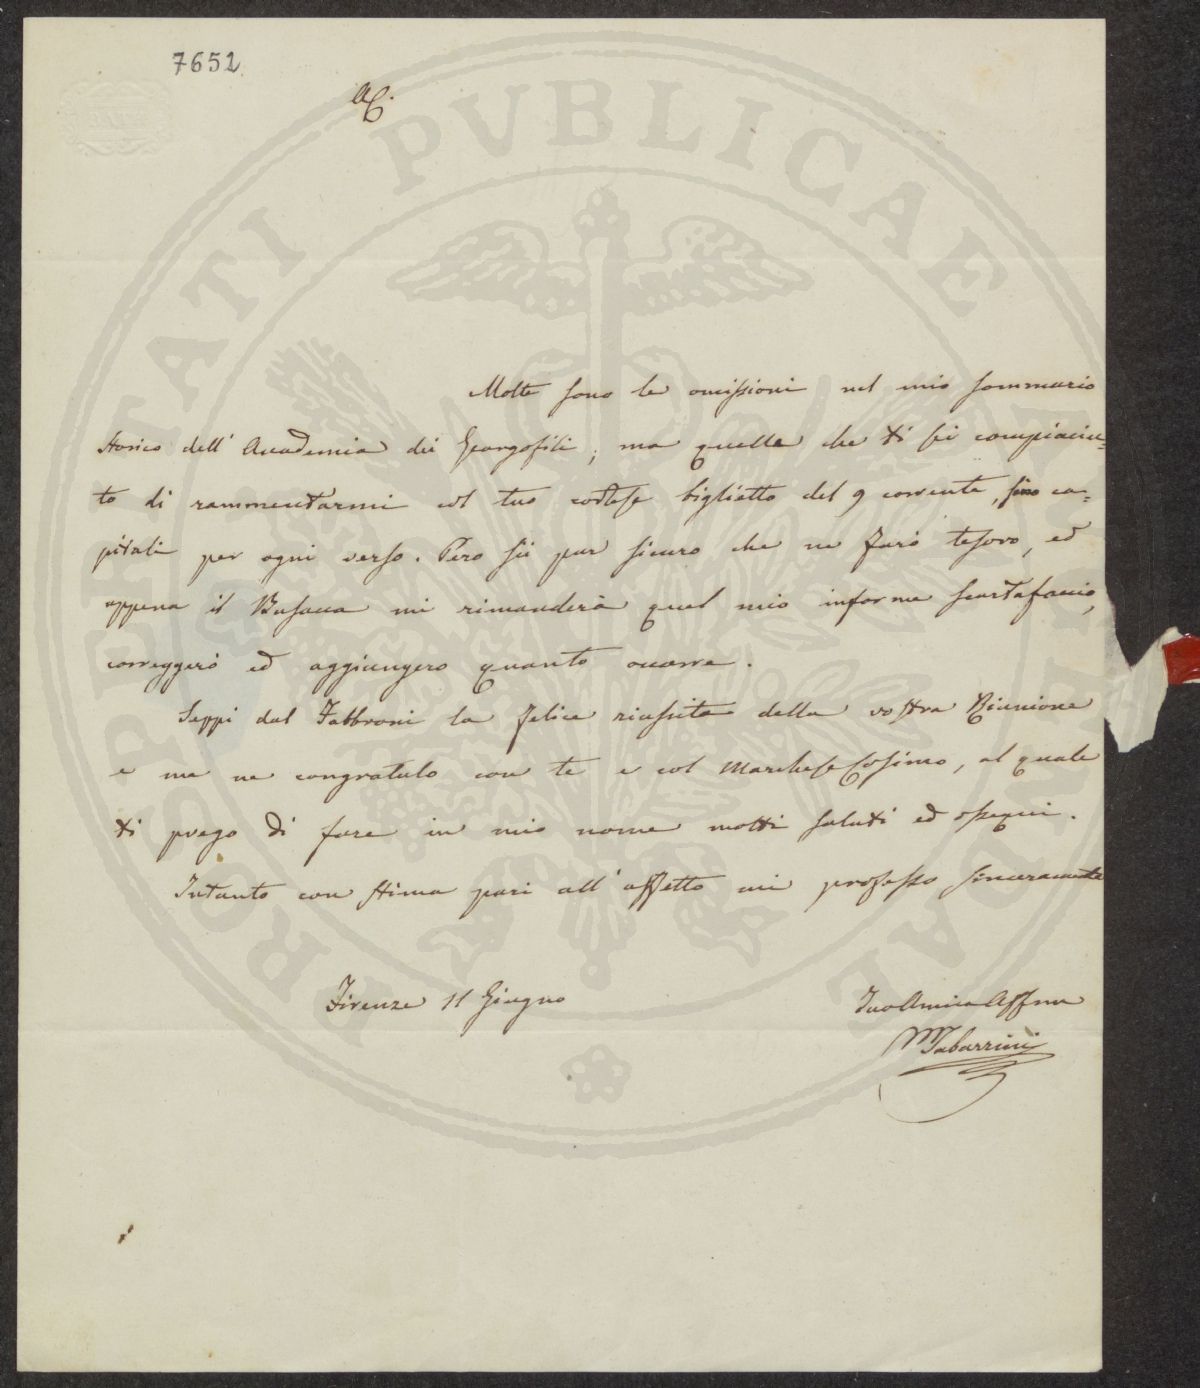 7652
AC.
PROSPERITATI PVBLICAE
Molte sono le omissioni nel mio sommario
storico dell' Accademia dei Georgofili, ma quelle che ti sei compiaciu=
to di rammentarmi col tuo cortese biglietto del 9 corrente, sono ca=
pitali per ogni verso. Però sii pur sicuro che ne farò tesoro, ed
appena il Busacca mi rimanderà quel mio informe scartafaccio,
correggerò ed aggiungerò quanto occorre.
Seppi dal Fabbroni la felice riuscita della vostra Riunione
e me ne congratulo con te e col Marchese Cosimo, al quale
ti prego di fare in mio nome molti saluti ed ossequi.
Intanto con stima pari all' affetto mi professo sinceramente
Firenze 11 Giugno
Tuo Amico Affmo
MTabarrini